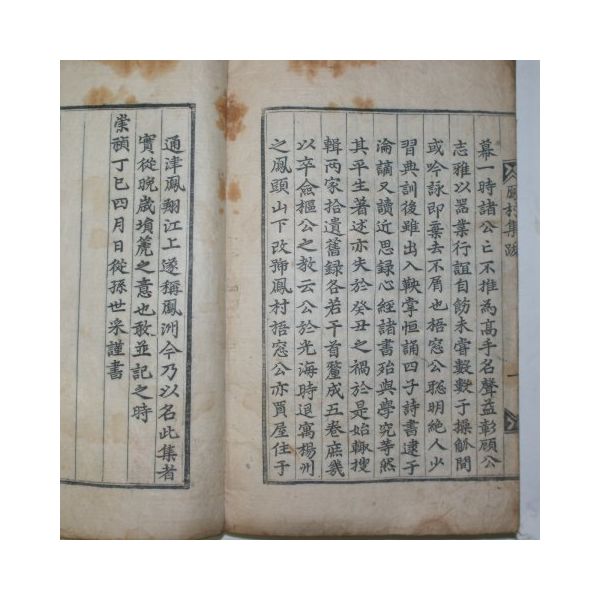 鳳村集跋
幕一時諸公亡不推為高手名聲益彰顧公
志雅以器業行誼自飭未嘗數數于操觚間
或吟詠即棄去不屑也梧窓公聰明絶人少
習典訓後雖出入鞅掌恒誦四子詩書逮子
淪謫又讀近思録心經諸書殆與學究等然
其平生著述亦失於癸丑之禍於是始輙搜
輯兩家拾遺舊録各若干首釐成五卷庶幾
以卒僉樞公之教云公於光海時退寓楊州
之鳳頭山下改號鳳村梧窓公亦買屋住于
通津鳳翔江上遂稱鳳洲今乃以名此集者
實從晩歳塤箎之意也敢並記之時
崇禎丁巳四月日從孫世采謹書